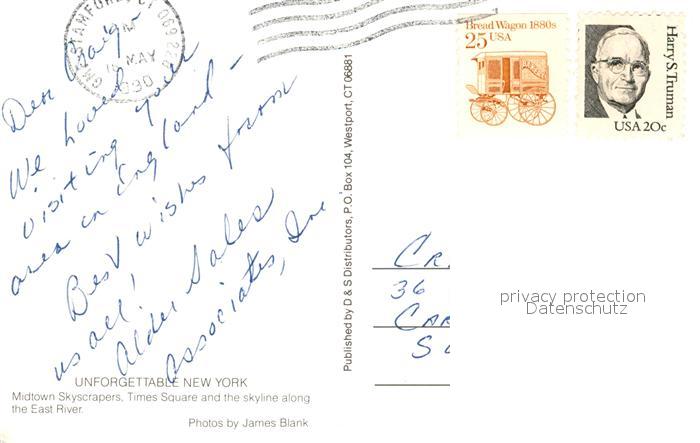 STAMFORD, CT 069
PM
MAY
1990
Bread Wagon 1880s
25 USA
Harry S. Truman
USA 20c
Dear Craig
We loved
visiting your
area in England -
Best wishes from
us all,
Alder Sales
Associates, Inc.
UNFORGETTABLE NEW YORK
Midtown Skyscrapers, Times Square and the skyline along
the East River.
Photos by James Blank
Published by D & S Distributors, P.O. Box 104, Westport, CT 06881
CR
36
CAR
S
privacy protection
Datenschutz